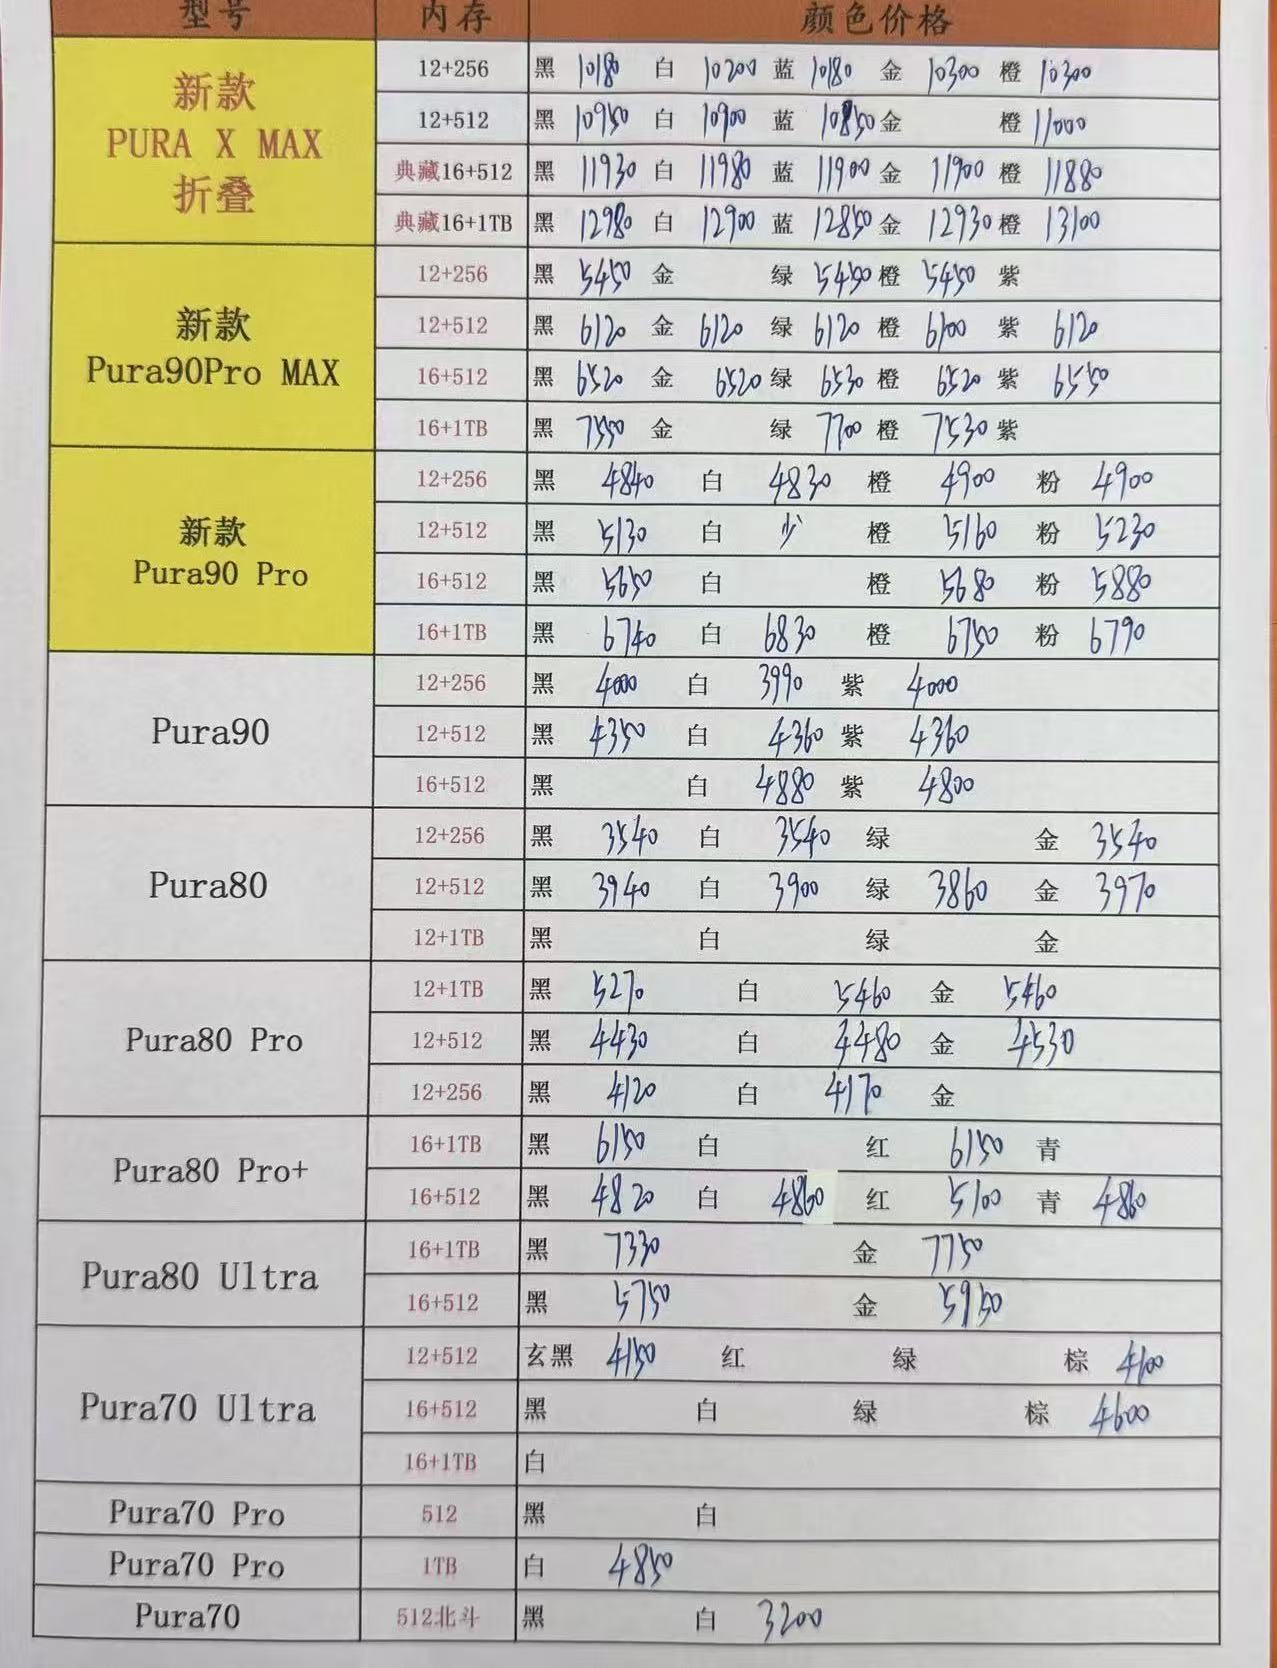 型号 内存 颜色价格
新款
PURA X MAX
折叠
12+256 黑 10180 白 10200 蓝 10180 金 10300 橙 10300
12+512 黑 10950 白 10900 蓝 10850 金 橙 11000
典藏16+512 黑 11930 白 11980 蓝 11900 金 11900 橙 11880
典藏16+1TB 黑 12980 白 12900 蓝 12850 金 12930 橙 13100
新款
Pura90Pro MAX
12+256 黑 5450 金 绿 5450 橙 5450 紫
12+512 黑 6120 金 6120 绿 6120 橙 6100 紫 6120
16+512 黑 6520 金 6520 绿 6530 橙 6520 紫 6550
16+1TB 黑 7550 金 绿 7700 橙 7530 紫
新款
Pura90 Pro
12+256 黑 4840 白 4830 橙 4900 粉 4900
12+512 黑 5130 白 少 橙 5160 粉 5230
16+512 黑 5650 白 橙 5680 粉 5880
16+1TB 黑 6740 白 6830 橙 6750 粉 6790
Pura90
12+256 黑 4000 白 3990 紫 4000
12+512 黑 4350 白 4360 紫 4360
16+512 黑 白 4880 紫 4800
Pura80
12+256 黑 3540 白 3540 绿 金 3540
12+512 黑 3940 白 3900 绿 3860 金 3970
12+1TB 黑 白 绿 金
Pura80 Pro
12+1TB 黑 5270 白 5460 金 5460
12+512 黑 4430 白 4480 金 4530
12+256 黑 4120 白 4170 金
Pura80 Pro+
16+1TB 黑 6150 白 红 6150 青
16+512 黑 4820 白 4860 红 5100 青 4860
Pura80 Ultra
16+1TB 黑 7330 金 7750
16+512 黑 5750 金 5950
Pura70 Ultra
12+512 玄黑 4150 红 绿 棕 4100
16+512 黑 白 绿 棕 4600
16+1TB 白
Pura70 Pro 512 黑 白
Pura70 Pro 1TB 白 4850
Pura70 512北斗 黑 白 3200